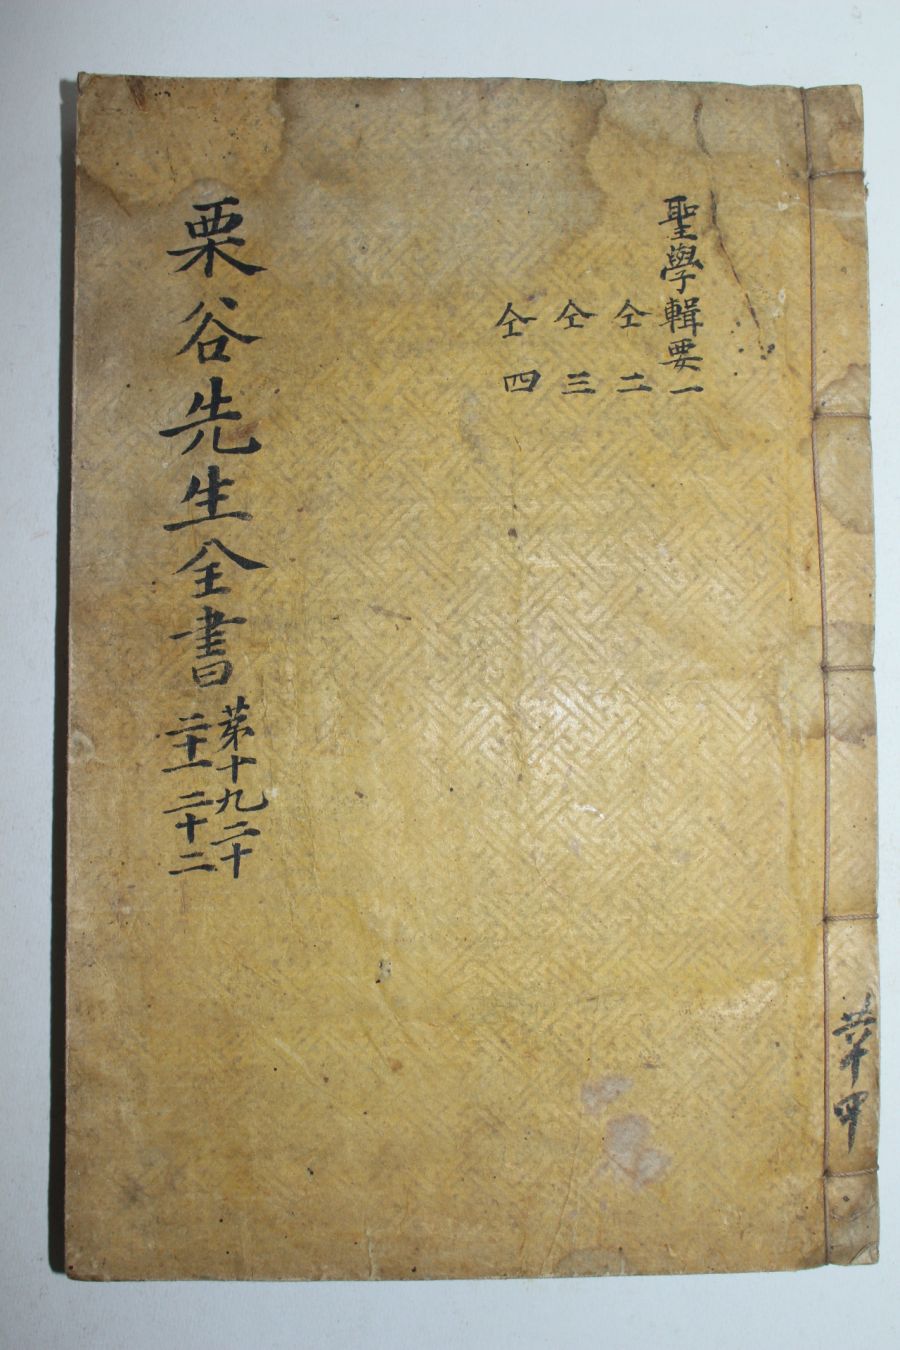 聖學輯要一
仝二
仝三
仝四
栗谷先生全書
苐十九二十
二十一二十二